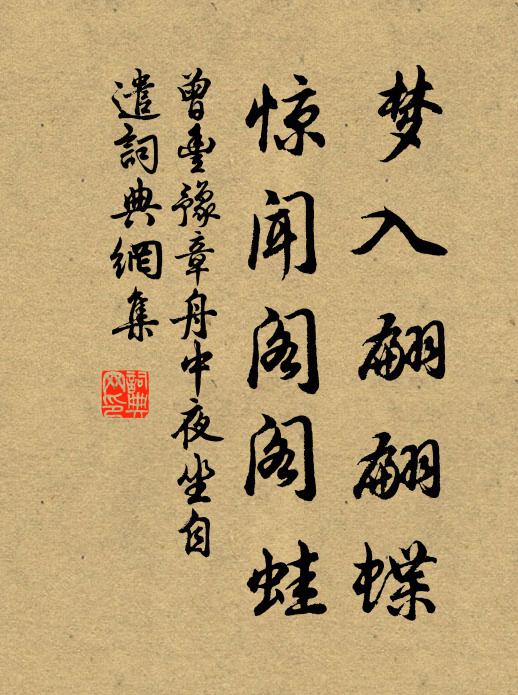 梦入翩翩蝶
惊闻阁阁蛙
曾豐豫章舟中夜坐自
遣詞典網集
詞典
网印